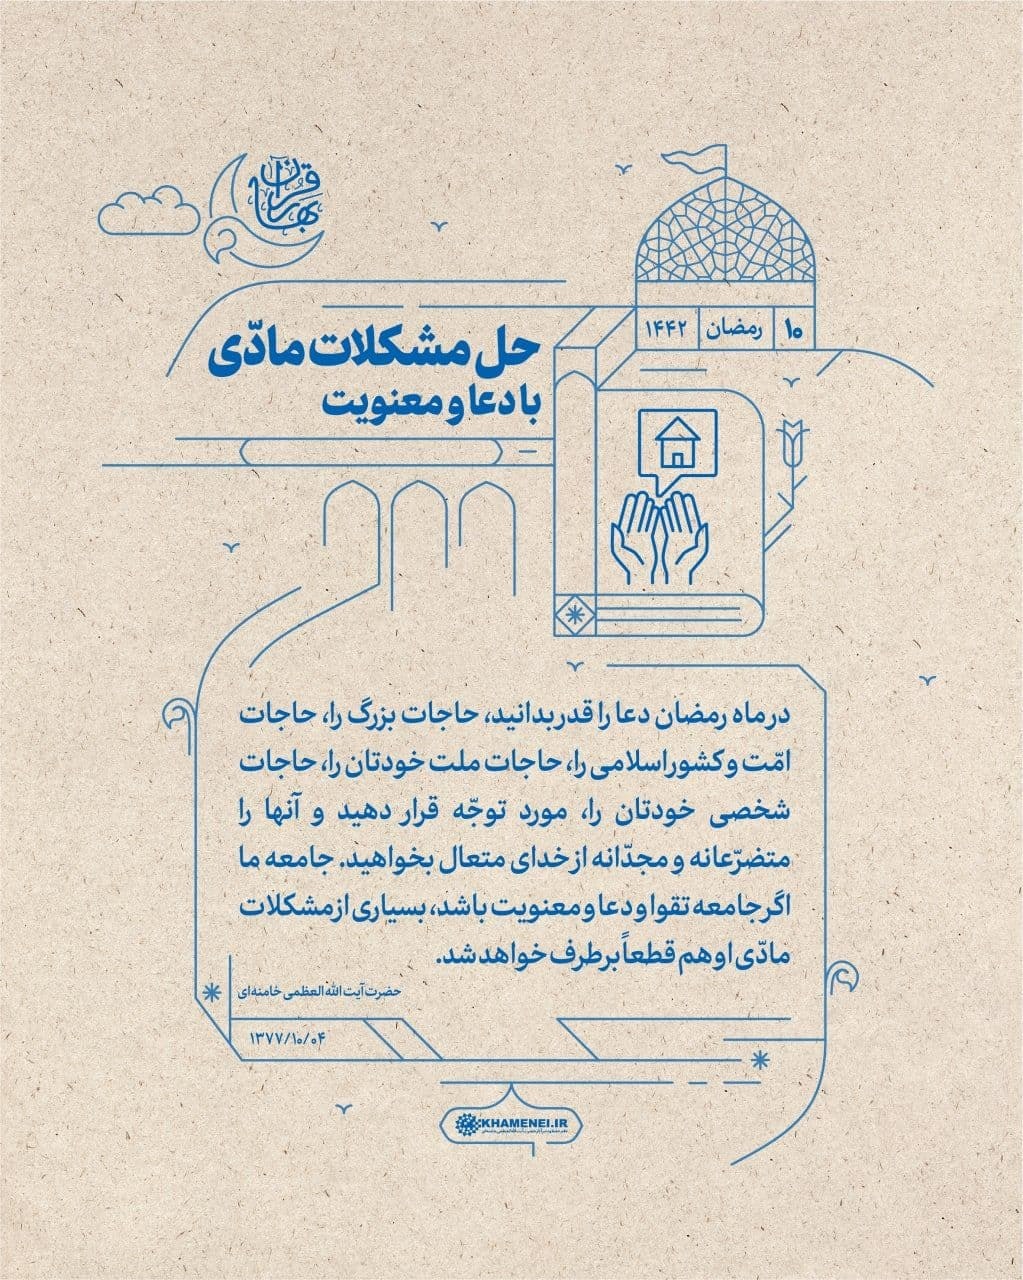 بهار قرآن
۱۰ رمضان ۱۴۴۲
حل مشکلات مادّی
با دعا و معنویت
در ماه رمضان دعا را قدر بدانید، حاجات بزرگ را، حاجات
امّت و کشور اسلامی را، حاجات ملت خودتان را، حاجات
شخصی خودتان را، مورد توجّه قرار دهید و آنها را
متضرّعانه و مجدّانه از خدای متعال بخواهید. جامعه ما
اگر جامعه تقوا و دعا و معنویت باشد، بسیاری از مشکلات
مادّی او هم قطعاً برطرف خواهد شد.
حضرت آیت الله العظمی خامنه‌ای
۱۳۷۷/۱۰/۰۴
KHAMENEI.IR